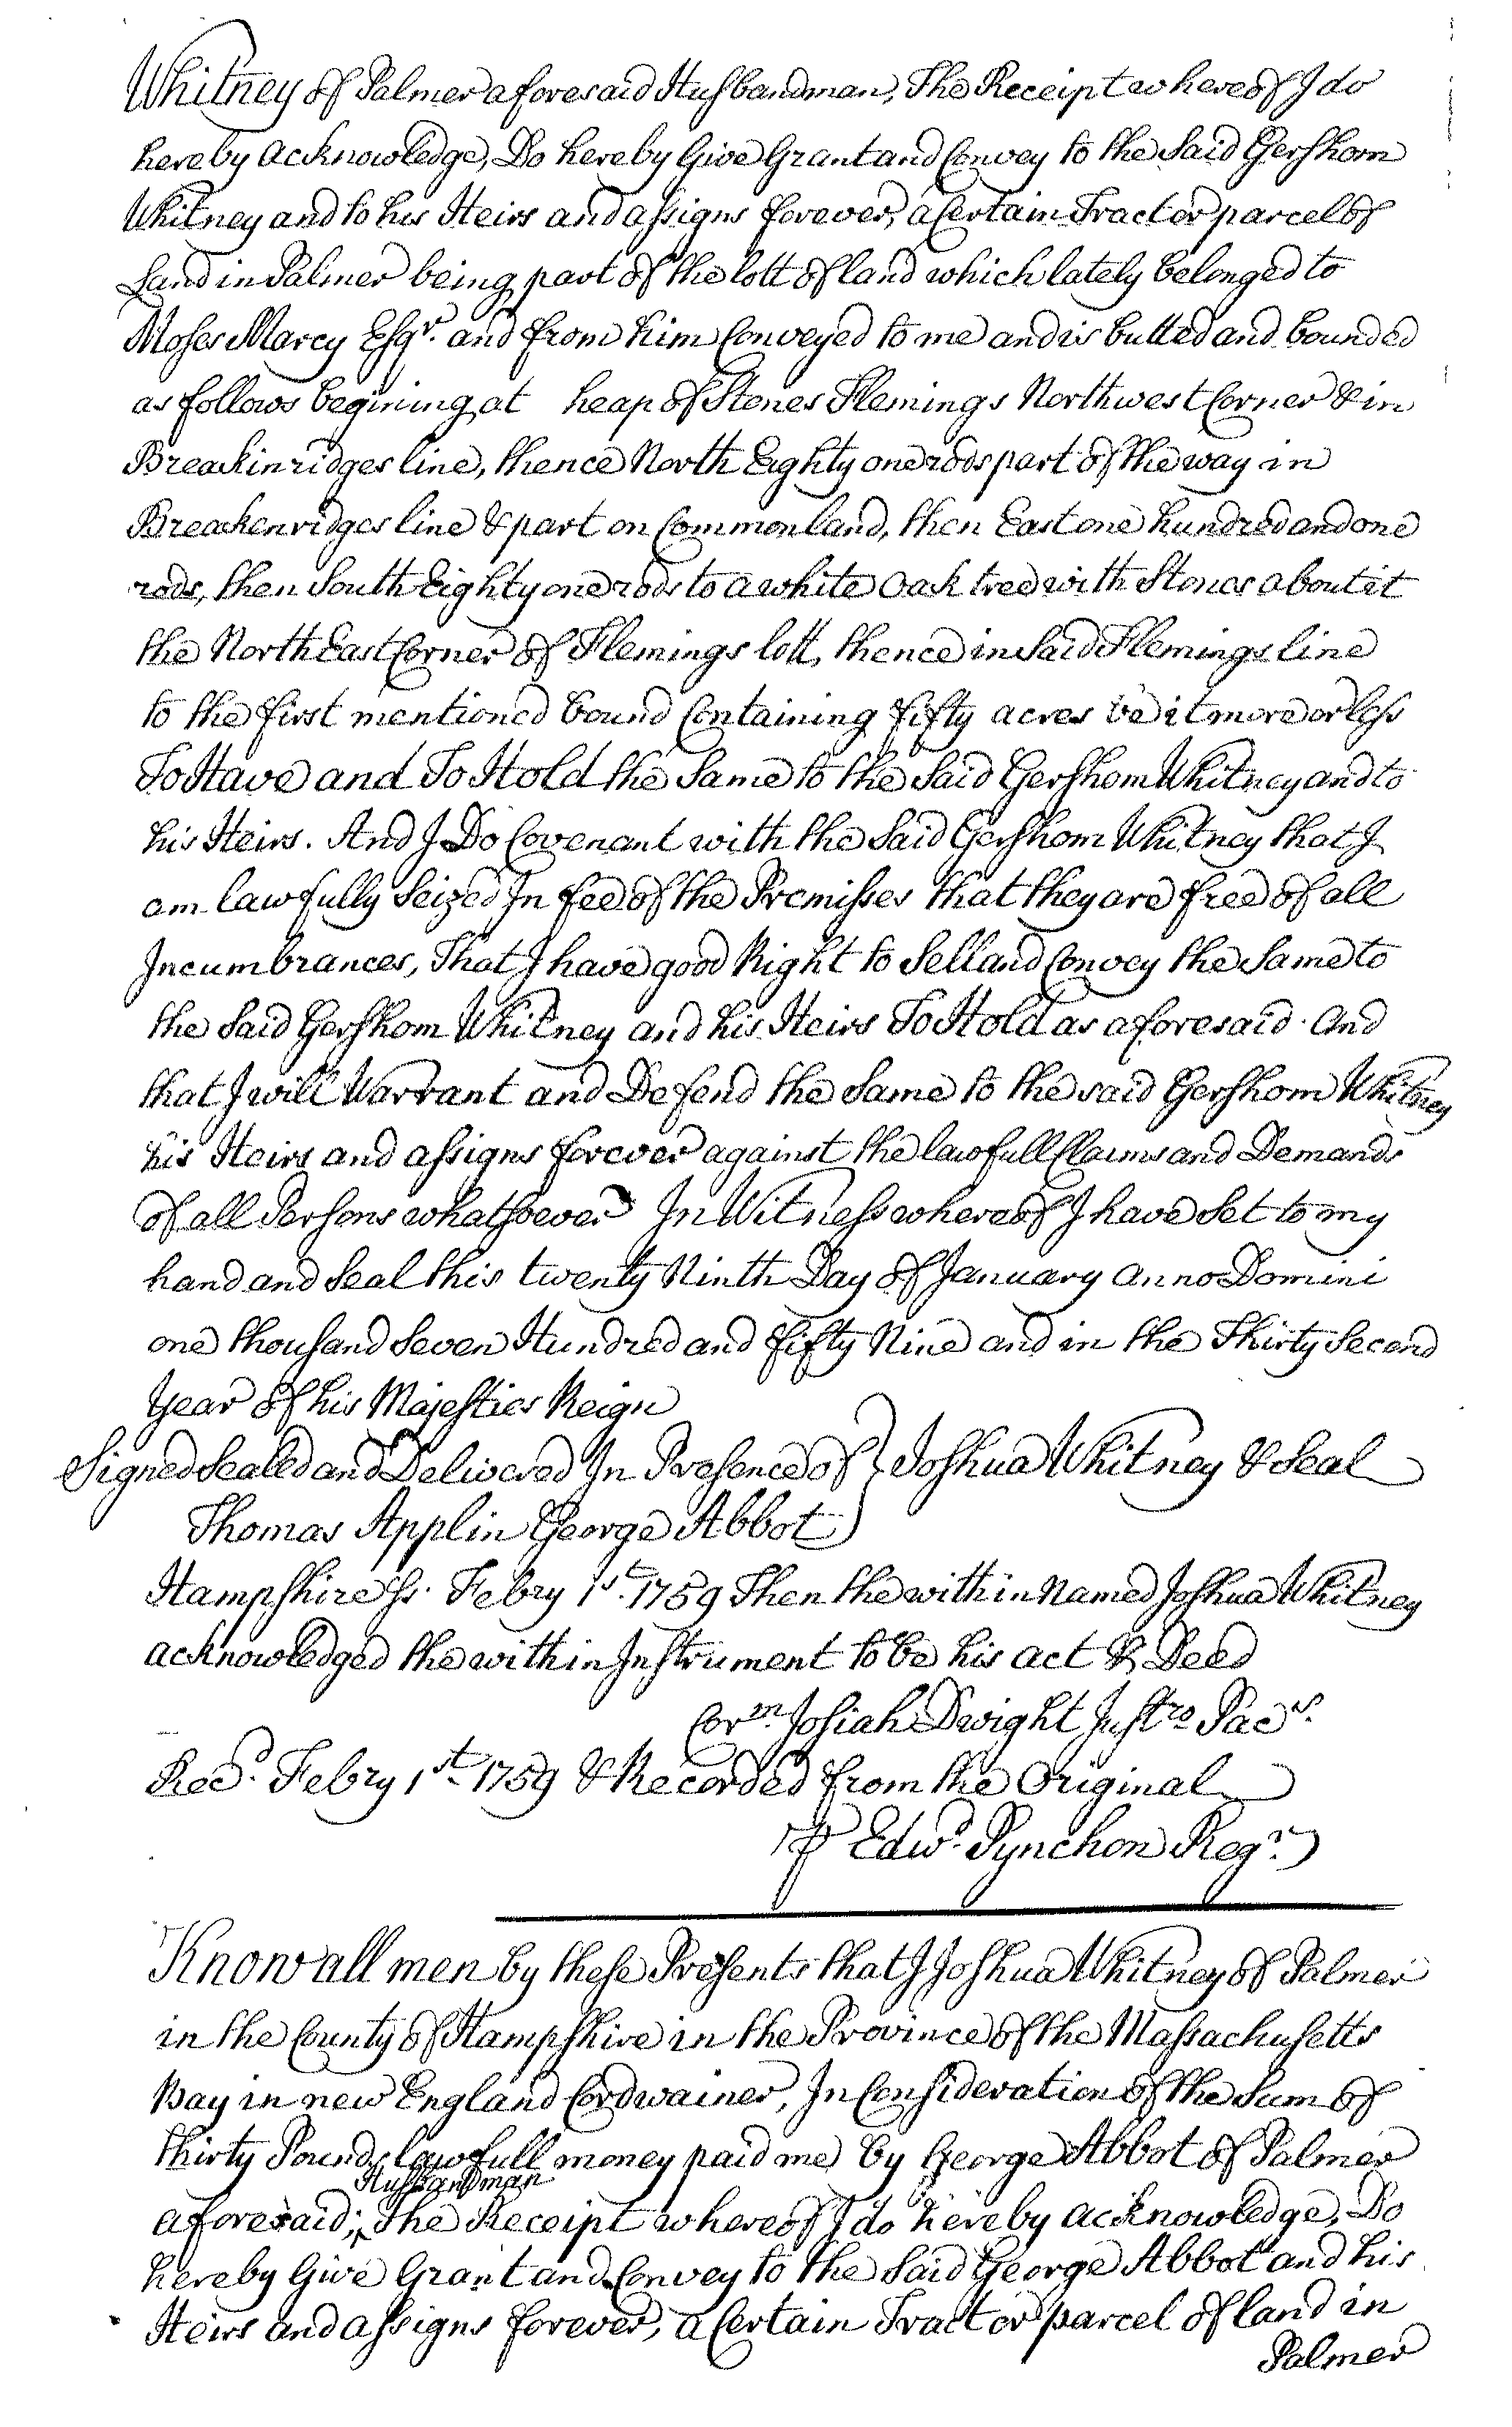 Whitney of Palmer aforesaid Husbandman, The Receipt whereof I do
hereby acknowledge, Do hereby Give Grant and Convey to the Said Gershom
Whitney and to his Heirs and assigns forever, a Certain Tract or parcel of
Land in Palmer being part of the lott of land which lately belonged to
Moses Marcy Esqr. and from him Conveyed to me and is butted and bounded
as follows begining at heap of Stones Flemings Northwest Corner & in
Breakinridges line, thence North Eighty one rods part of the way in
Breakenridges line & part on Common land, then East one hundred and one
rods, then South Eighty one rods to a white Oak tree with Stones about it
the North East Corner of Flemings lott, thence in Said Flemings line
to the first mentioned bound Containing fifty acres be it more or less
To Have and To Hold the Same to the Said Gershom Whitney and to
his Heirs. And I Do Covenant with the Said Gershom Whitney that I
am lawfully Seized In fee of the Premisses that they are free of all
Incumbrances, That I have good Right to Sell and Convey the Same to
the Said Gershom Whitney and his Heirs To Hold as aforesaid. And
that I will Warrant and Defend the Same to the said Gershom Whitney
his Heirs and assigns forever against the lawfull Claims and Demands
of all Persons whatsoever In Witness whereof I have Set to my
hand and Seal this twenty Ninth Day of January Anno Domini
one thousand Seven Hundred and fifty Nine and in the Thirty Second
Year of his Majesties Reign
Signed Sealed and Delivered In Presence of } Joshua Whitney & Seal
Thomas Applin George Abbot
Hampshire Ss. Febry 1st. 1759 Then the within Named Joshua Whitney
acknowledged the within Instrument to be his act & Deed
Corm. Josiah Dwight Justro Pacs.
Recd. Febry 1st. 1759 & Recorded from the Original
⅌ Edwd. Pynchon Regr.
Know all men by these Presents that I Joshua Whitney of Palmer
in the County of Hampshire in the Province of the Massachusetts
Bay in new England Cordwainer, In Consideration of the Sum of
thirty Pounds lawfull money paid me by George Abbot of Palmer
Husbandman
aforesaid; The Receipt whereof I do hereby acknowledge, Do
hereby Give Grant and Convey to the Said George Abbot and his
Heirs and assigns forever, a Certain Tract or parcel of land in
Palmer